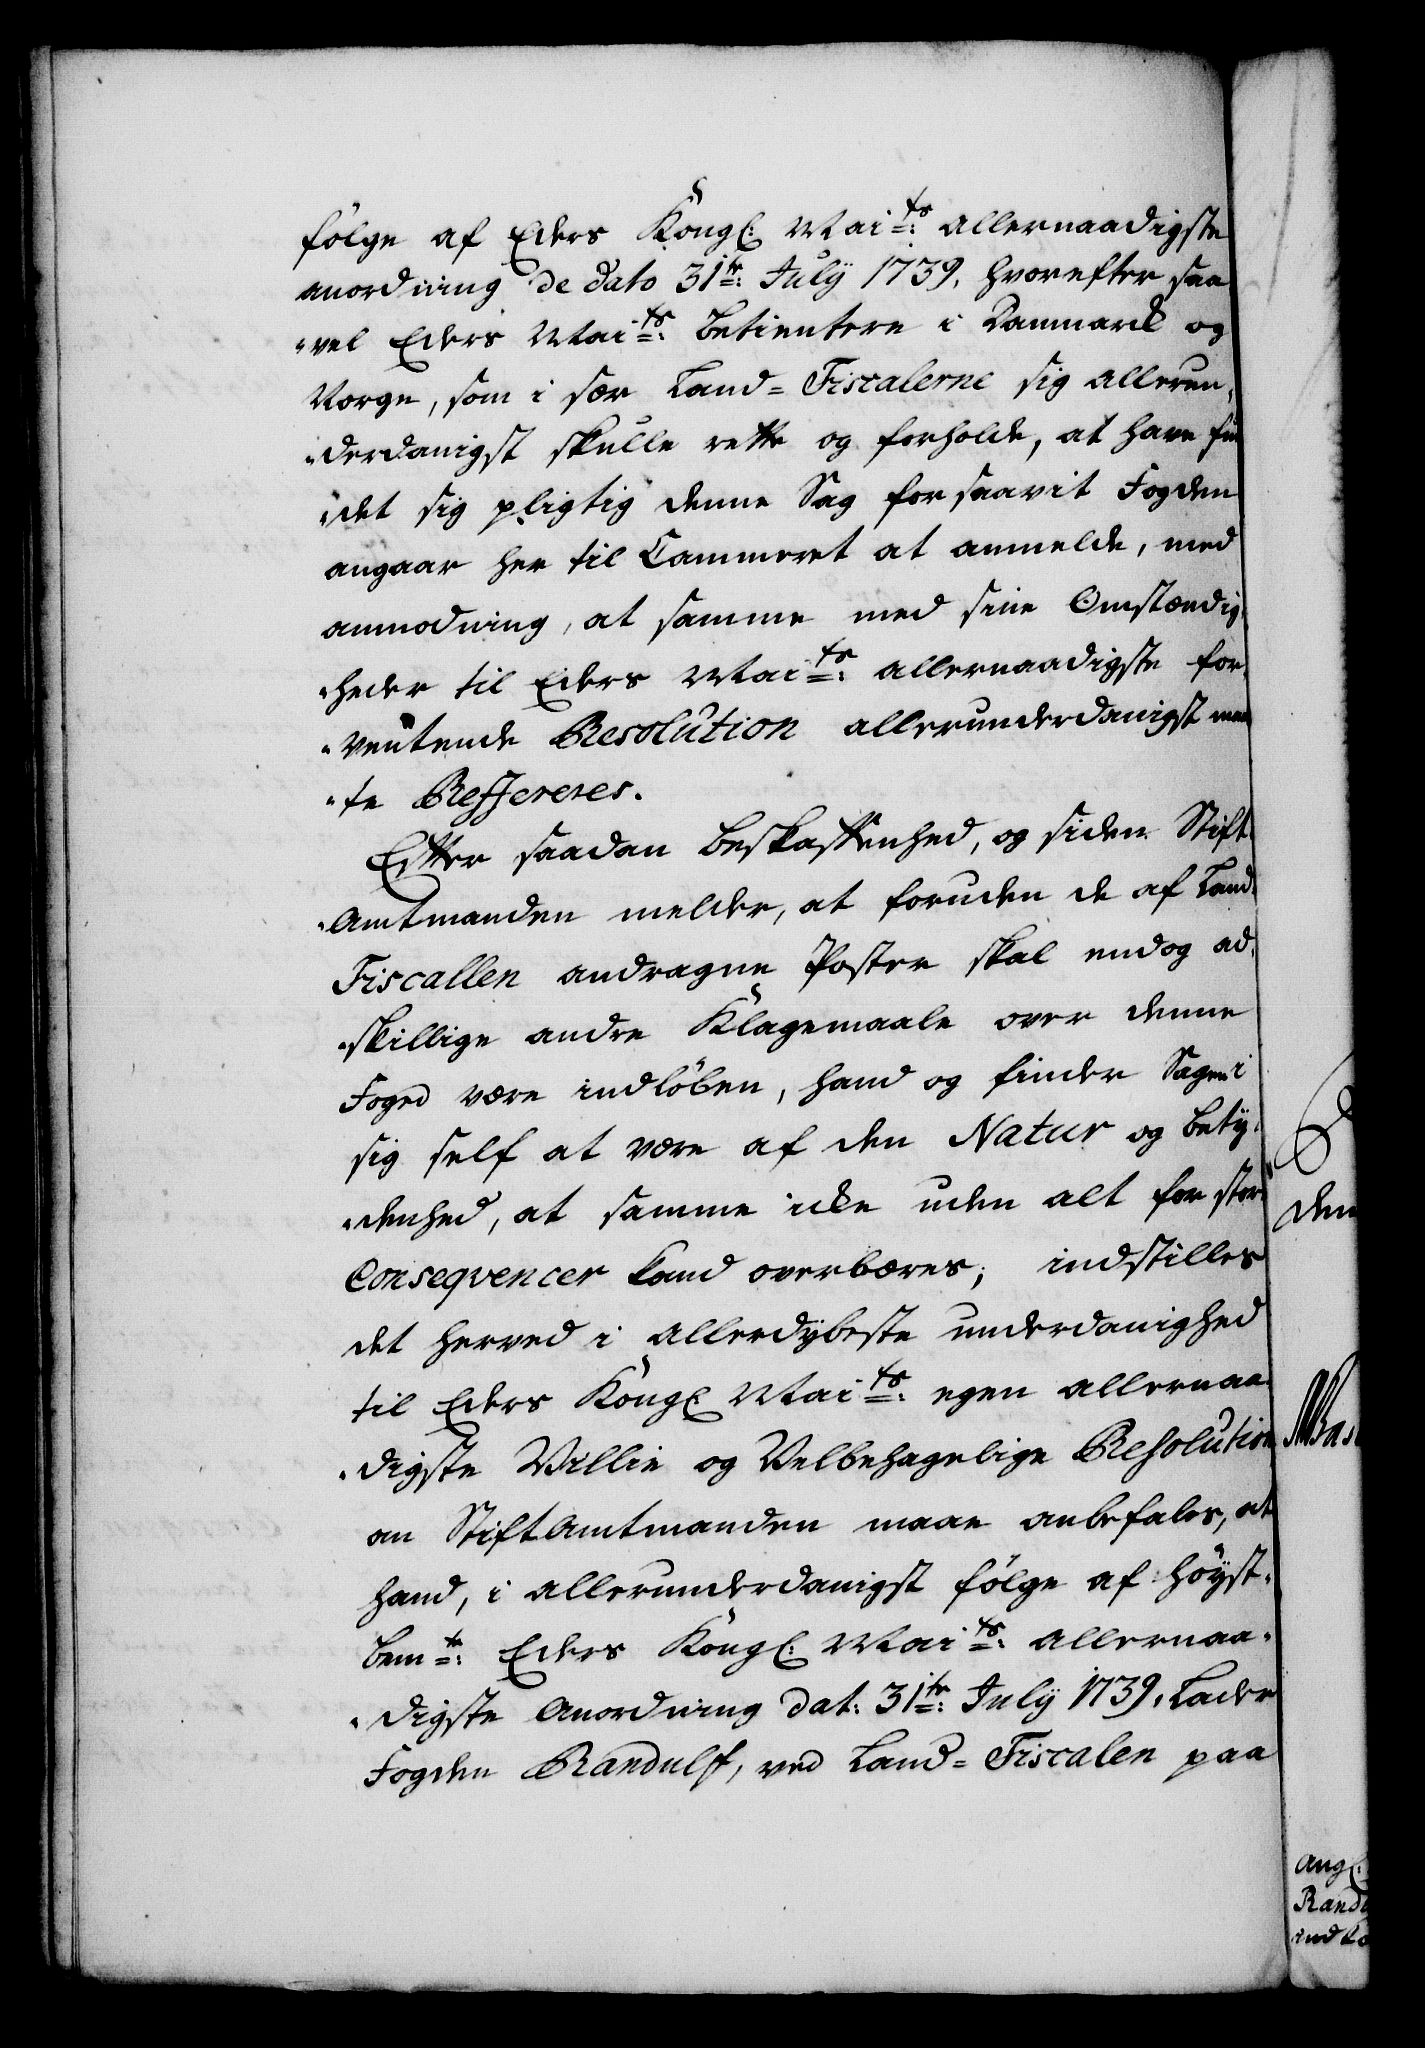 fölge af Eders Kongl: Mai ts: allernaadigste
anordning de dato 31te: Julÿ 1739. hvorefter saa
"vel Eders Mai ts: betientere i Danmark og
Norge, som i sær Land=Fiscalerne sig allerun,
"derdanigst skulle rette og forholde, at have fun
"det sig pligtig denne Sag forsaavit Fogden
angaar her til Cammeret at anmelde, med
anmodning, at samme med sine Omstændig,
"heder til Eders Mai ts: allernaadigste for,
"ventende Resolution allerunderdanigst maa
"te Reffereres.
Efter saadan beskaffenhed, og siden Stift
"Amtmanden melder, at foruden de af Land
Fiscallen andragne Poster skal endog ad,
"skillige andre Klagemaale over denne
Foged være indlöben, hand og finder Sagen i
sig self at være af den Natur og bety,
"denhed, at samme icke uden alt for stor
Conseqvencer kand overbæres; indstilles
det herved i allerdybeste underdanighed
til Eders Kongl Mai ts: egen allernaa,
"digste Villie og Velbehagelige Resolution
an StiftAmtmanden maae anbefales, at
hand, i allerunderdanigst fölge af höyst,
bem te: Eders Kongl: Mai ts: allernaa,
"digste Anordning dat: 31te: Julÿ 1739, Lader
Fogden Randulff, ved Land=Fiscalen paa
den
Ang:
Rand